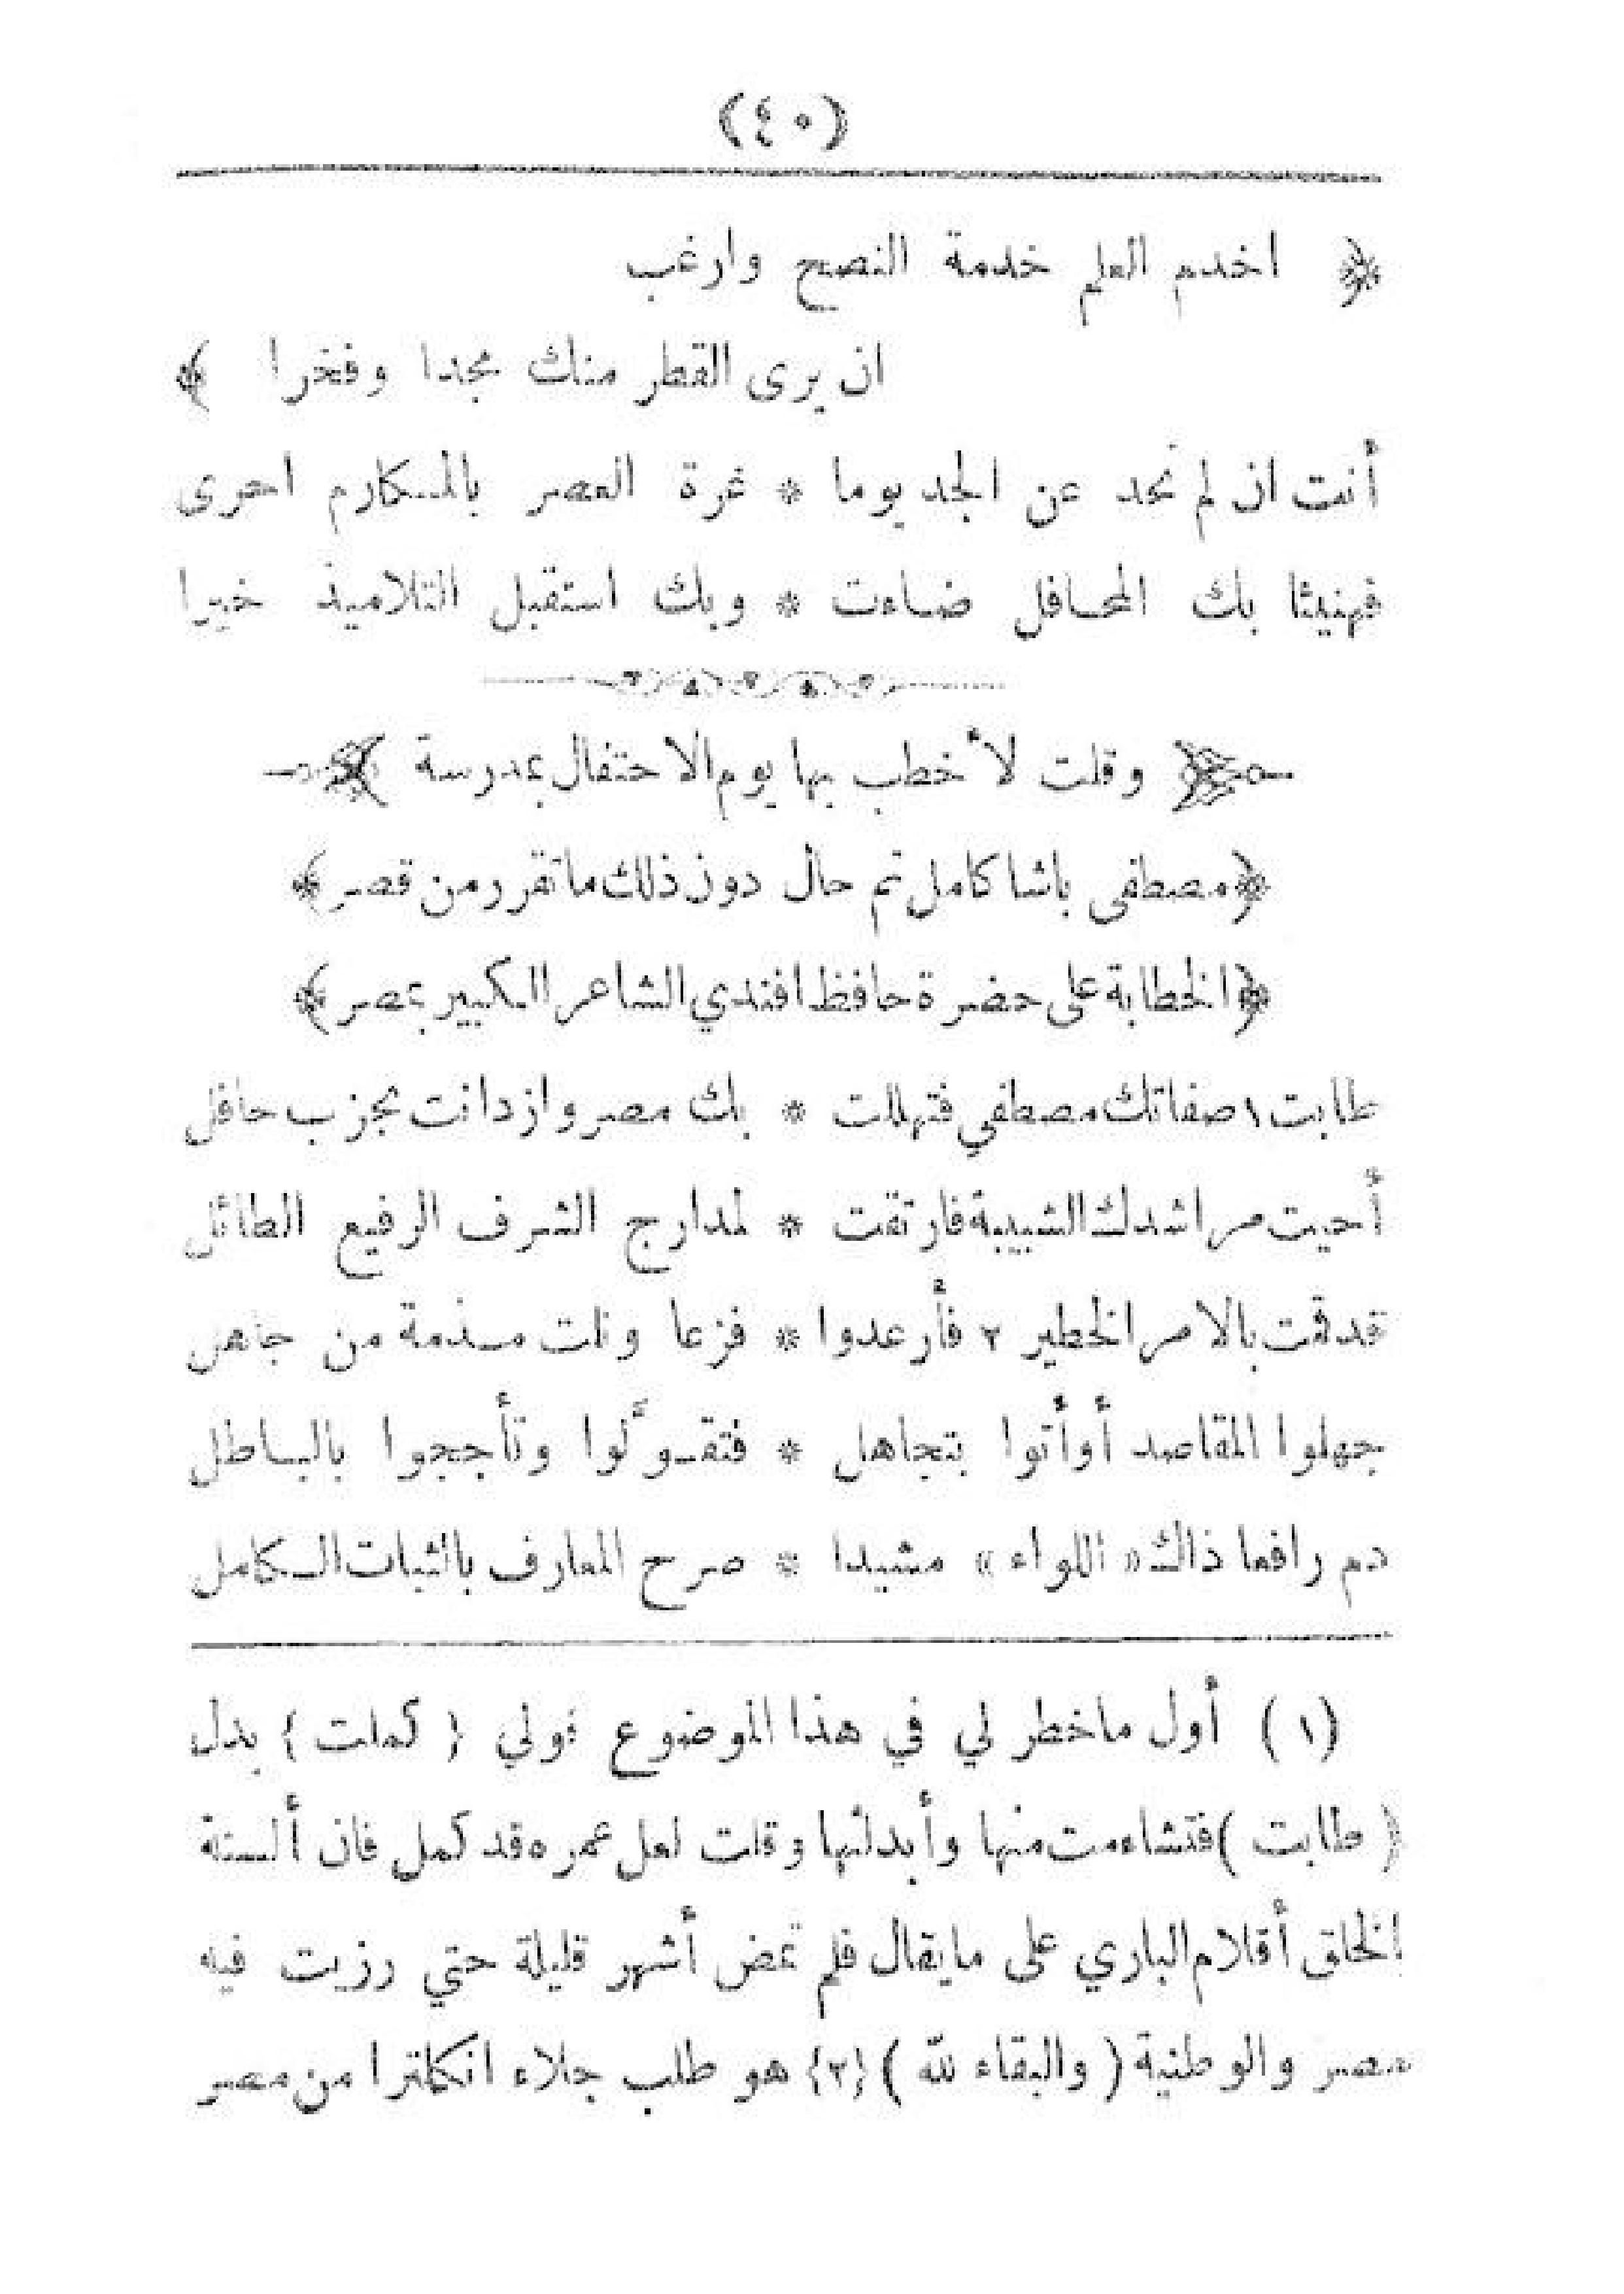 (٤٠)
﴿ اخدم العلم خدمة النصح وارغب
ان يرى القطر منك مجدا وفخرا ﴾
أنت ان لم تحد عن الجد يوما * غرة العصر بالمكارم احرى
فهنيئا بك المحافل ضاءت * وبك استقبل التلاميذ خيرا
﴿ وقلت لأخطب بها يوم الاحتفال بمدرسة ﴾
﴿مصطفى باشا كامل ثم حال دون ذلك ما تقرر من قصر﴾
﴿الخطابة على حضرة حافظ افندي الشاعر الكبير بمصر﴾
طابت ١ صفاتك مصطفي فتهللت * بك مصر وازدانت بحزب حافل
أحيت مراشدك الشبيبة فارتقت * لمدارج الشرف الرفيع الطائل
قد قمت بالامر الخطير ٢ فأرعدوا * فزعا ونلت مذمة من جاهل
جهلوا المقاصد أو أتوا بتجاهل * فتقوَّلوا وتأججوا بالباطل
دم رافعا ذاك « اللواء » مشيدا * صرح المعارف بالثبات الكامل
(١) أول ما خطر لي في هذا الموضوع قولي { كملت } بدل
( طابت ) فتشاءمت منها وأبدلتها وقلت لعل عمره قد كمل فان ألسنة
الخلق أقلام الباري على ما يقال فلم تمض أشهر قليلة حتي رزيت فيه
مصر والوطنية ( والبقاء لله ) {٢} هو طلب جلاء انكلترا من مصر